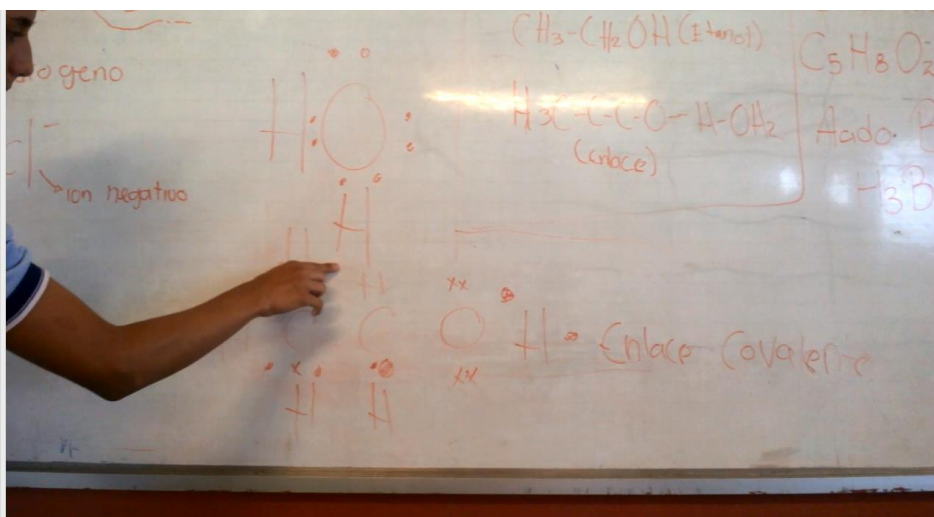 ogeno
ion negativo
H O
H
H H
C C O H Enlace Covalente
H H
CH3-CH2OH (Etanol)
H3C-C-C-O-H-OH2
(enlace)
C5H8O2
H3B